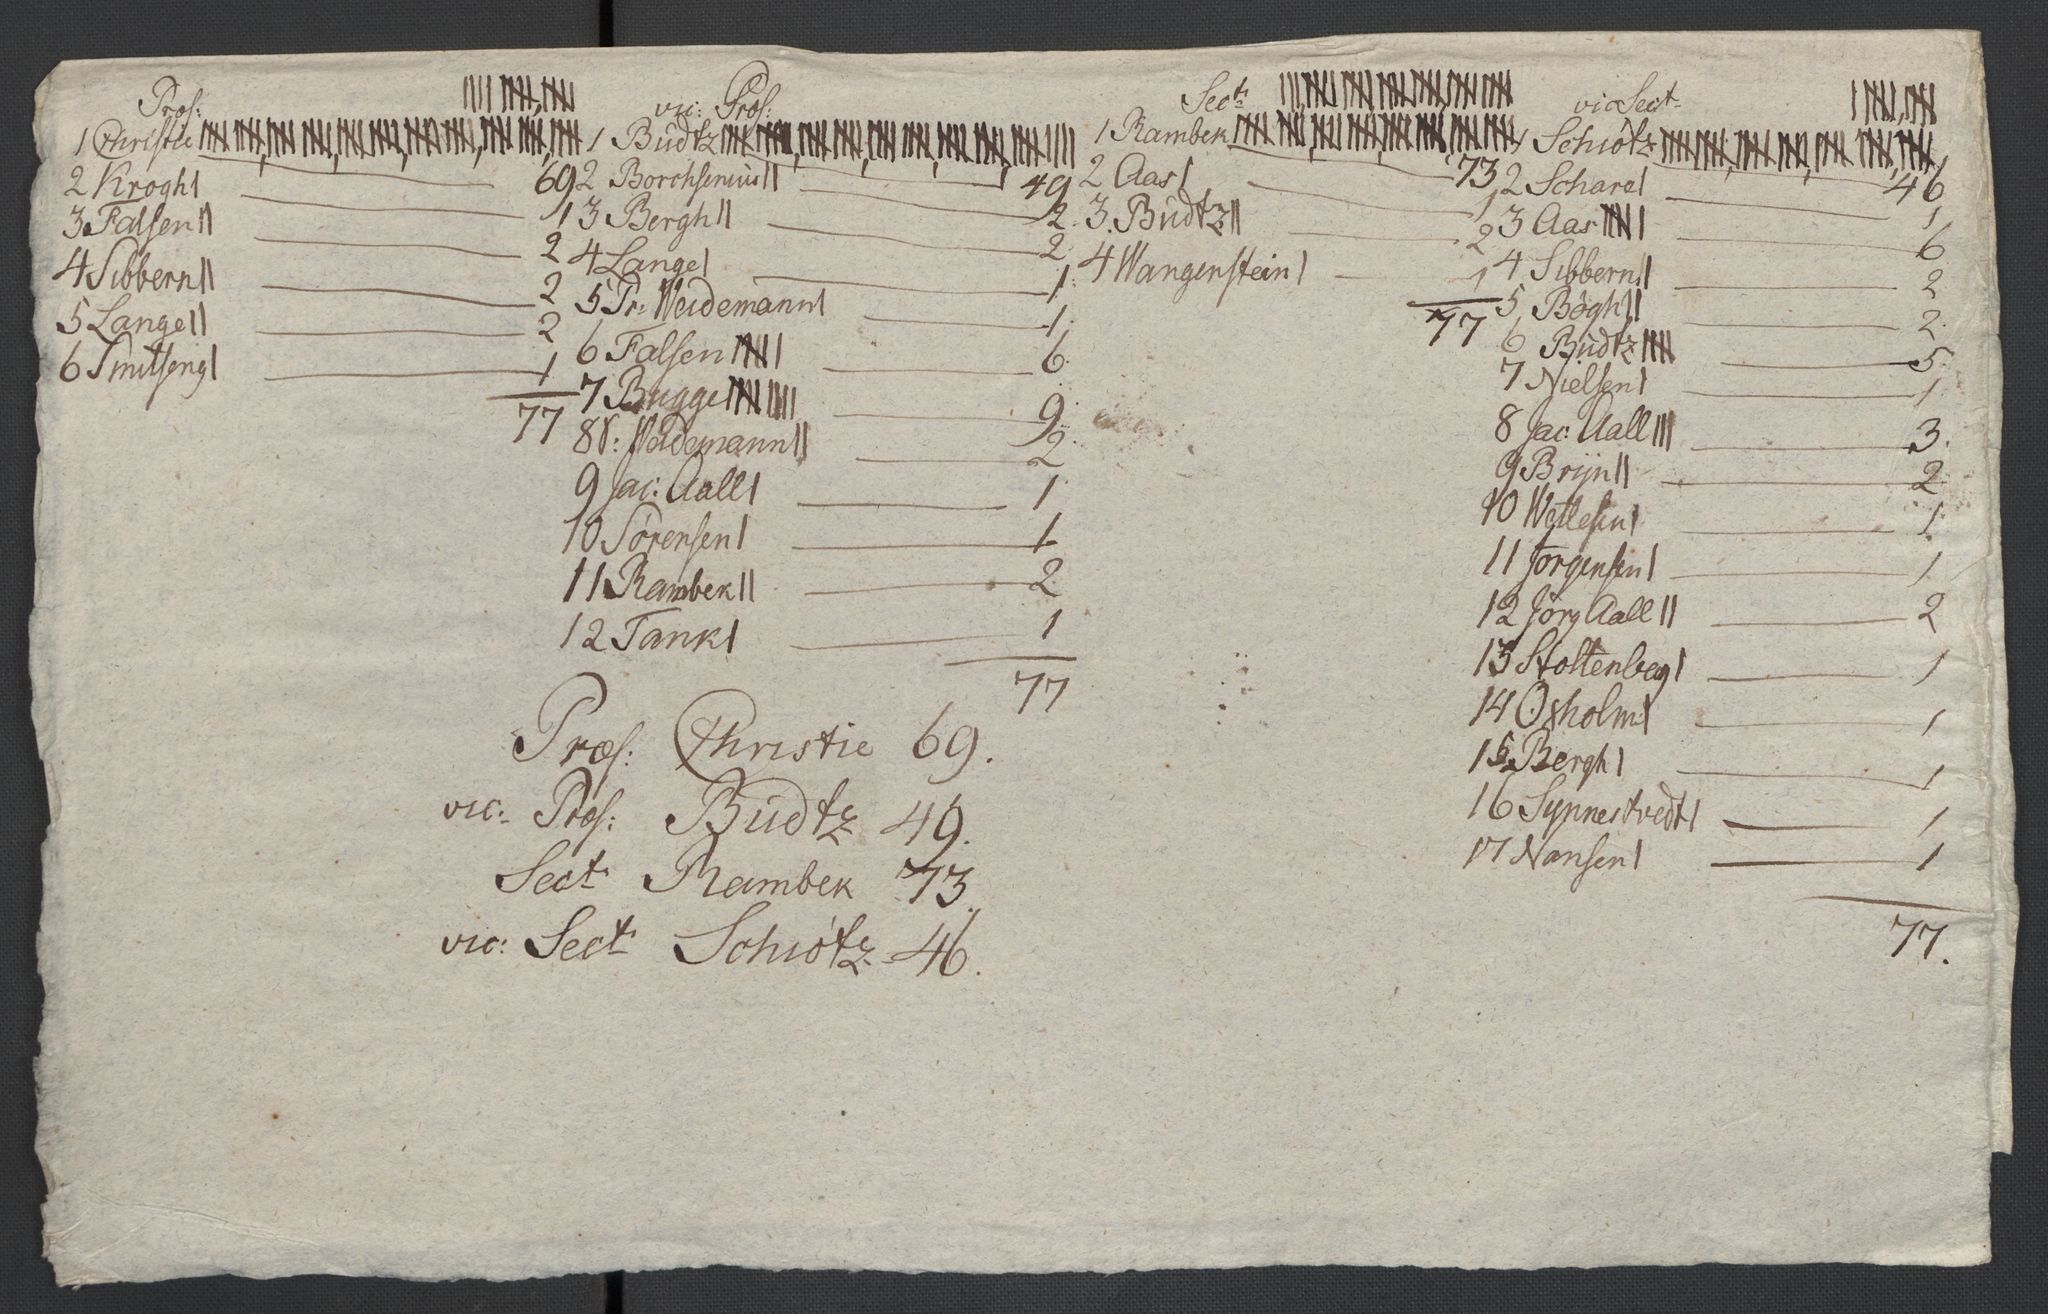 Præs:
1 Christie 69
2 Krogh 1
3 Falsen 2
4 Sibbern 2
5 Lange 2
6 Smitseng 1
77
vic: Præs:
1 Budtz 49
2 Borchsenius 2
3 Bergh 2
4 Lange 1
5 Pr: Weidemann 1
6 Falsen 6
7 Bugge 9
8 V: Weidemann 2
9 Jac: Aall 1
10 Sörensen 1
11 Rambek 2
12 Tank 1
77
Sect
1 Rambek 73
2 Aas 1
3 Budtz 2
4 Wangenstein 1
77
vic Sect
1 Schiötz 46
2 Schare 1
3 Aas 6
4 Sibbern 2
5 Bögh 2
6 Budtz 5
7 Nielsen 1
8 Jac: Aall 3
9 Brijn 2
10 Wetlesen 1
11 Jorgensen 1
12 Jörg Aall 2
13 Stoltenberg 1
14 Oxholm 1
15 Bergh 1
16 Synnestvedt 1
17 Nansen 1
77.
Præs: Christie 69.
vic: Præs: Budtz 49.
Sect Rambek 73.
vic: Sect Schiötz 46.